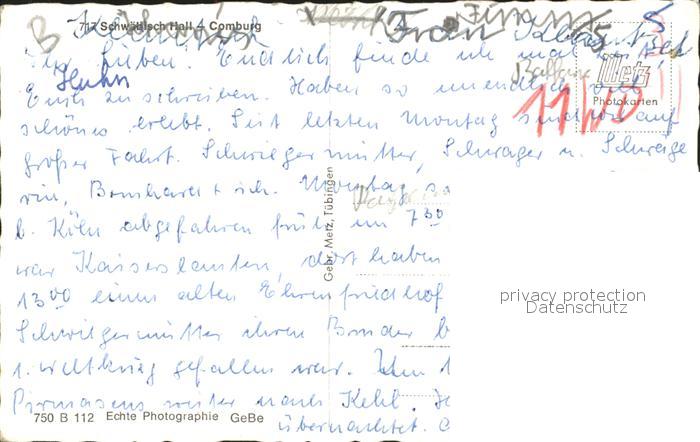 717 Schwäbisch Hall - Comburg
B
Frau
Ihr Lieben. Endlich finde ich mal
Huhn
Metz
Photokarten
Euch zu schreiben. Haben so unendlich viel
11/10
schönes erlebt. Seit letzten Montag sind wir auf
großer Fahrt. Schwiegermutter, Schwager u. Schwäge
rin, Bernhard + ich. Montag
b. Köln abgefahren früh um 7 30
war Kaiserslautern, dort haben
13 00 einen alten Ehrenfriedhof
Schwiegermutter ihren Bruder
1. Weltkrieg gefallen war.
Pirmasens weiter nach Kehl.
übernachtet.
Gebr. Metz, Tübingen
750 B 112 Echte Photographie GeBe
privacy protection
Datenschutz